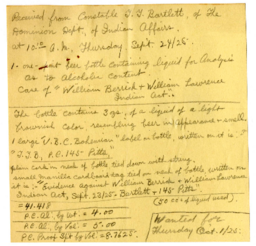 Received from Constable D. G. Bartlett, of the
Dominion Dept. of Indian Affairs.
at 10:15 A.M. Thursday Sept. 24/25.
1- one pint beer bottle containing liquid for Analysis
as to Alcoholic content.
Case of "William Berrick & William Lawrence
Indian Act."
The bottle contains of a liquid of a light
brownish color resembling beer in appearance & smell.
1 large "V.B.C. Bohemian" label on bottle, written on it is:-
"J.J.B, P.O. 145 Pitts"
plain cork in neck of bottle tied down with string.
small manilla cardboard tag tied on neck of bottle written on
it is:- "Evidence against William Berrick & William Lawrence
Indian Act, Sept. 23/25. Bartlett & 145 Pitts".
= 41.418 (50.00 of liquid used).
P.C. Al. by wt. = 4.00
P.C. Al. by Vol. = 5.00
P.C. Proof Spt by Vol = 8.7625.
Wanted for
Thursday Oct. 1/25.